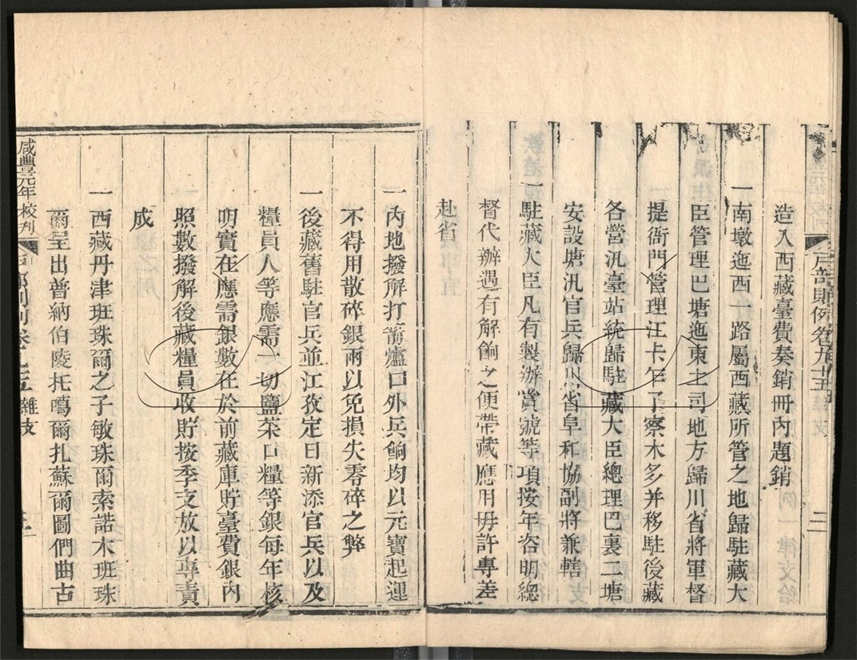 戶部則例卷九十五 雜支 二
造入西藏臺費奏銷冊內題銷
一南墩迤西一路屬西藏所管之地歸駐藏大
臣管理巴塘迤東土司地方歸川省將軍督
提衙門管理江卡乍了察木多并移駐後藏
各營汛臺站統歸駐藏大臣總理巴裏二塘
安設塘汛官兵歸川省阜和協副將兼轄
一駐藏大臣凡有製辦賞號等項按年咨明總
督代辦遇有解餉之便帶藏應用毋許專差
赴省
一內地撥解打箭爐口外兵餉均以元寶起運
不得用散碎銀兩以免損失零碎之獘
一後藏舊駐官兵並江孜定日新添官兵以及
糧員人等應需一切鹽菜口糧等銀每年核
明實在應需銀數在於前藏庫貯臺費銀內
照數撥解後藏糧員收貯按季支放以專責
成
一西藏丹津班珠爾之子敏珠爾索諾木班珠
爾呈出普納伯陵托噶爾扎蘇爾圖們曲古
咸豐元年校刊 戶部則例卷九十五 雜支 三